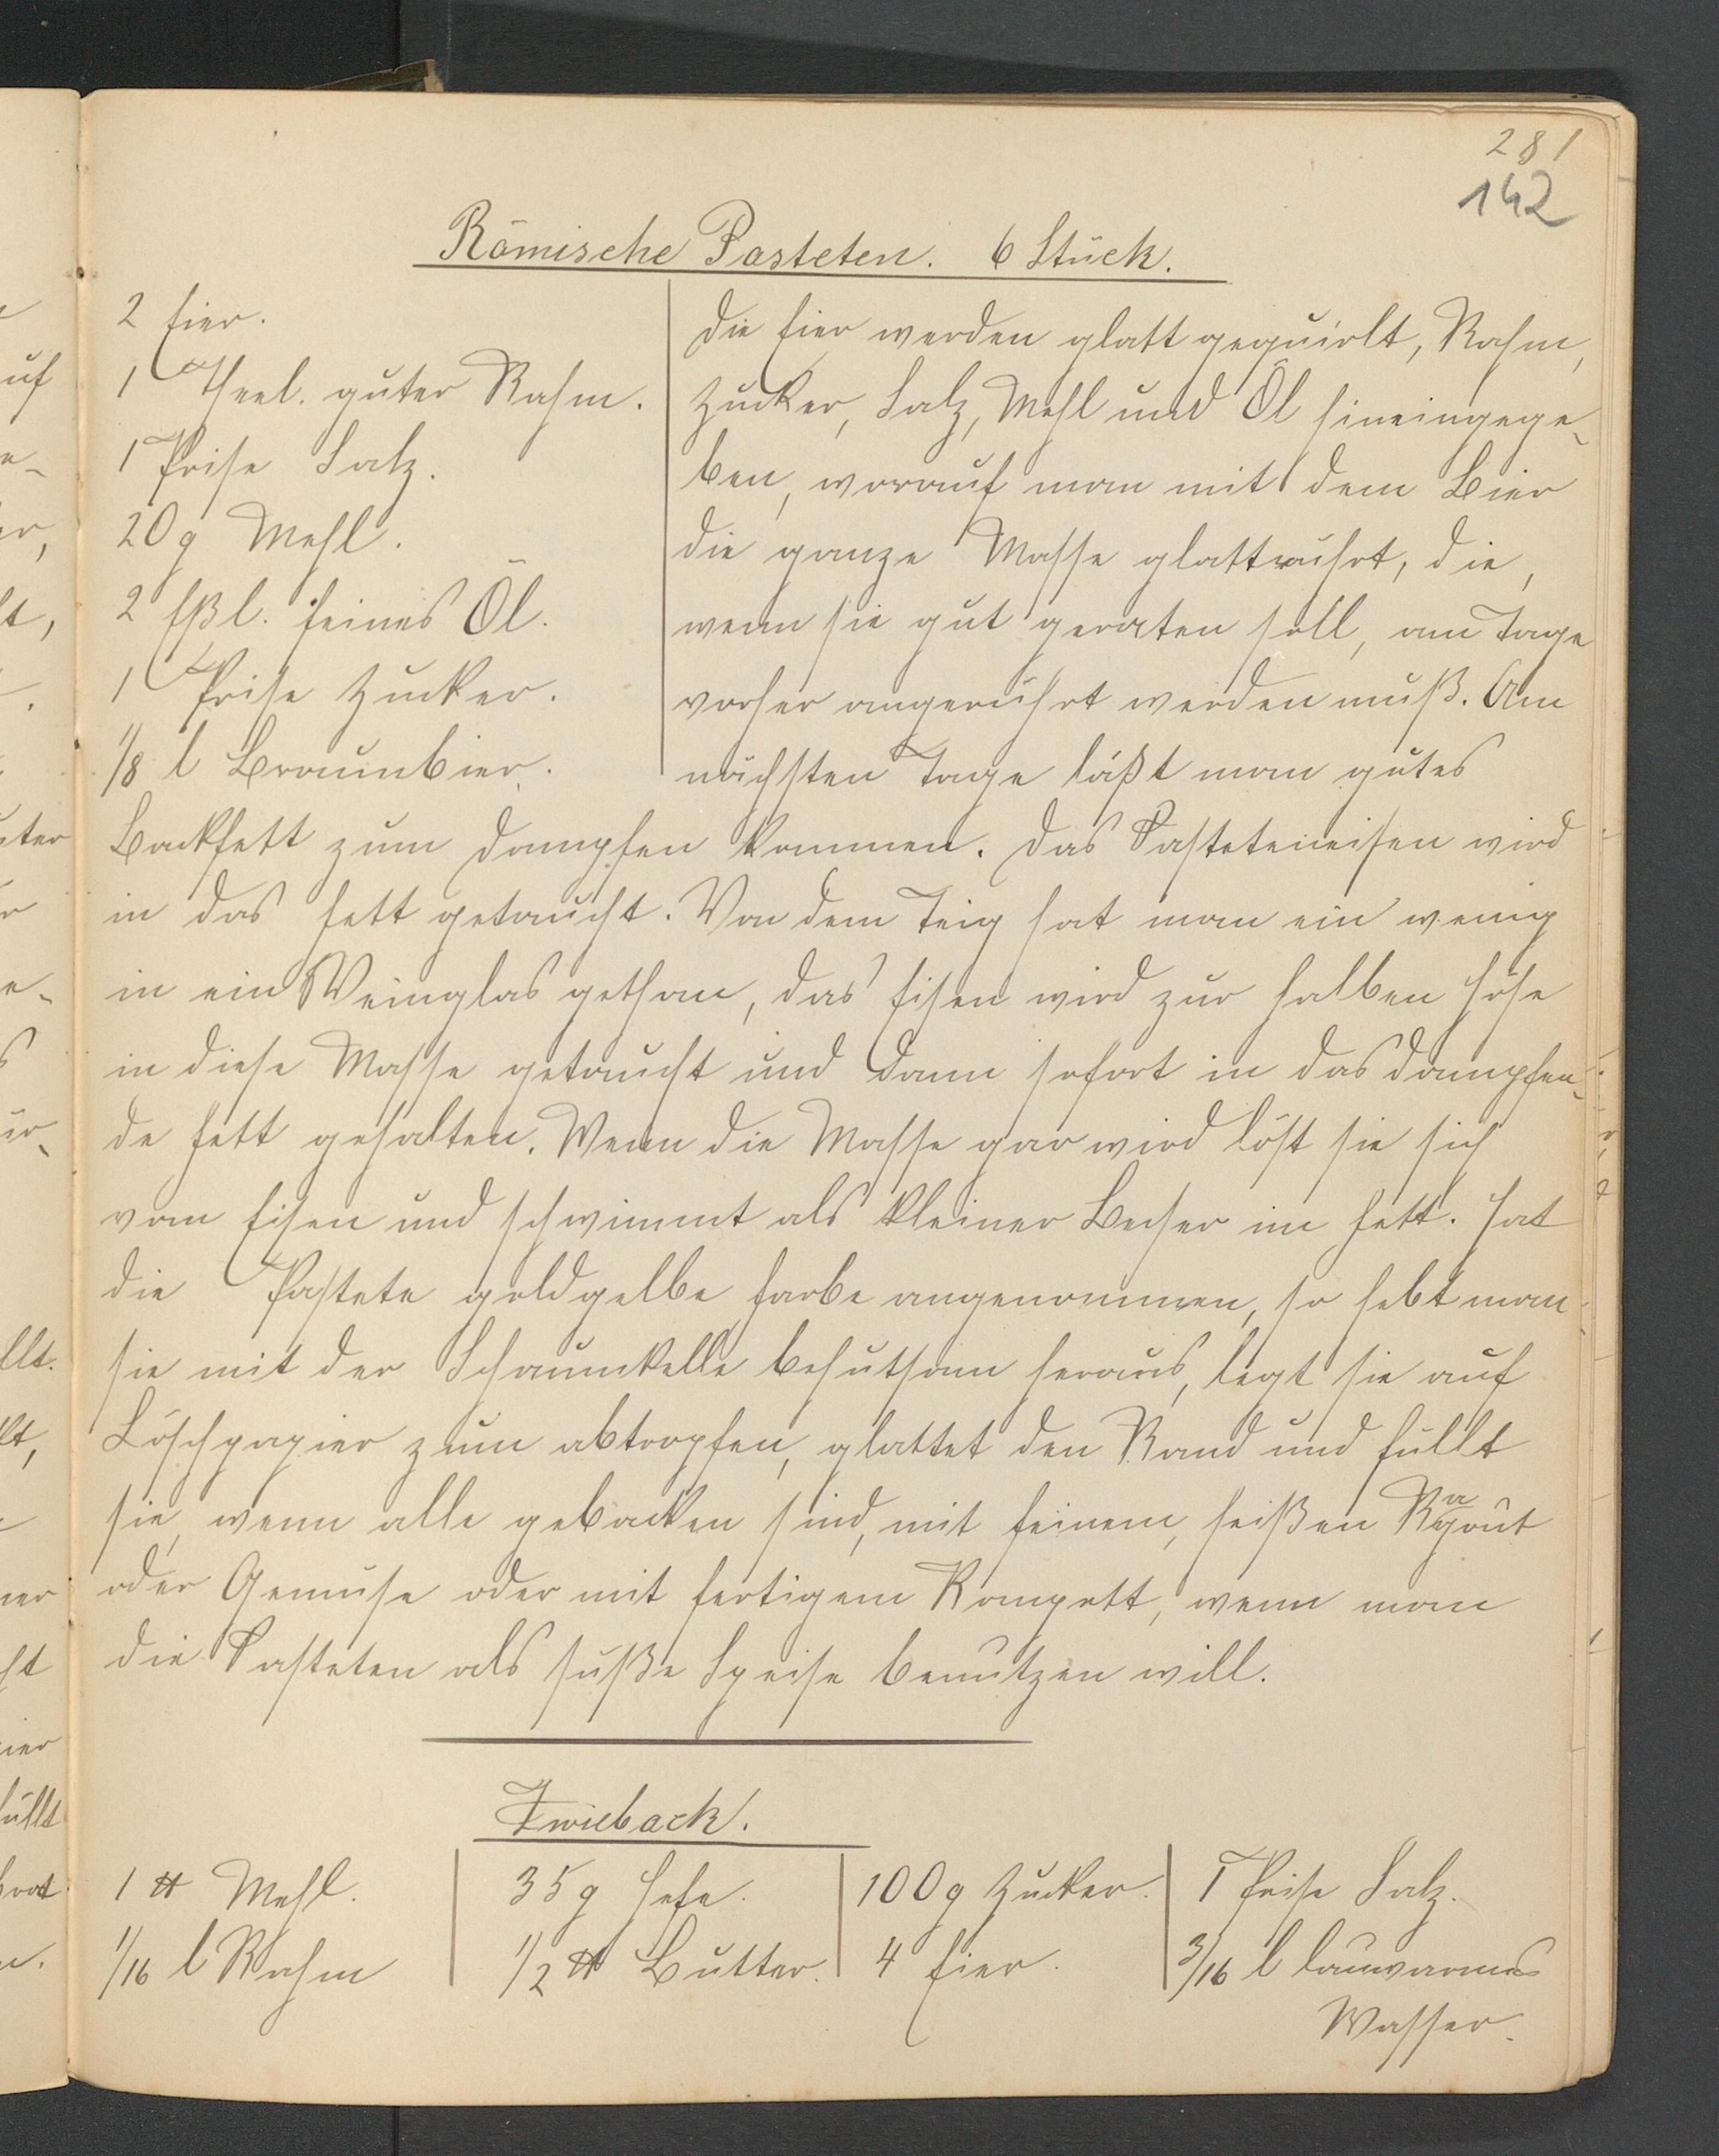 281
142
Römische Pasteten. 6 Stück.
2 Eier.
1 Theel. guter Rahm.
1 Prise Salz.
20 g Mehl.
2 Eßl. feines Öl.
1 Prise Zucker.
1/8 l Braunbier.
Die Eier werden glatt gequirlt, Rahm,
Zucker, Salz, Mehl und Öl hineingege-
ben, worauf man mit dem Bier
die ganze Masse glattrührt, die,
wenn sie gut geraten soll, am Tage
vorher angerührt werden muß. Am
nächsten Tage läßt man gutes
Backfett zum Dampfen kommen. Das Pasteteneisen wird
in das Fett getaucht. Von dem Teig hat man ein wenig
in ein Weinglas gethan, das Eisen wird zur halben Höhe
in diese Masse getaucht und dann sofort in das dampfen-
de Fett gehalten. Wenn die Masse gar wird löst sie sich
vom Eisen und schwimmt als kleiner Becher im Fett. Hat
die Pastete goldgelbe Farbe angenommen, so hebt man
sie mit der Schaumkelle behutsam heraus, legt sie auf
Löschpapier zum abtropfen, glättet den Rand und füllt
sie, wenn alle gebacken sind, mit feinem, heißen Ragout
oder Gemüse oder mit fertigem Kompott, wenn man
die Pasteten als süße Speise benutzen will.
Zwieback.
1 ℔ Mehl. 35 g Hefe. 100 g Zucker. 1 Prise Salz.
1/16 l Rahm 1/2 ℔ Butter. 4 Eier. 3/16 l lauwarmes
Wasser.